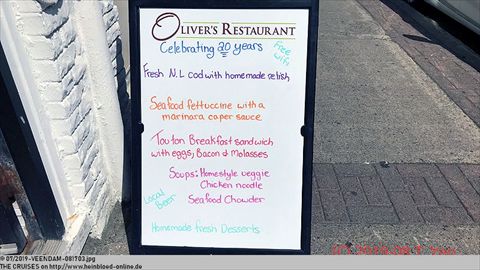 OLIVER'S RESTAURANT
Celebrating 20 years
Free
wifi
Fresh N.L cod with homemade relish
Seafood fettuccine with a
marinara caper sauce
Touton Breakfast sandwich
with eggs, Bacon & Molasses
Soups: Homestyle veggie
Chicken noodle
Local
Beer
Seafood Chowder
Homemade Fresh Desserts
© 07/2019-VEENDAM-081703.jpg
THE CRUISES on http://www.heinbloed-online.de